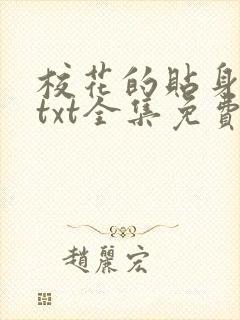 校花的貼身
txt全集免費
趙麗宏